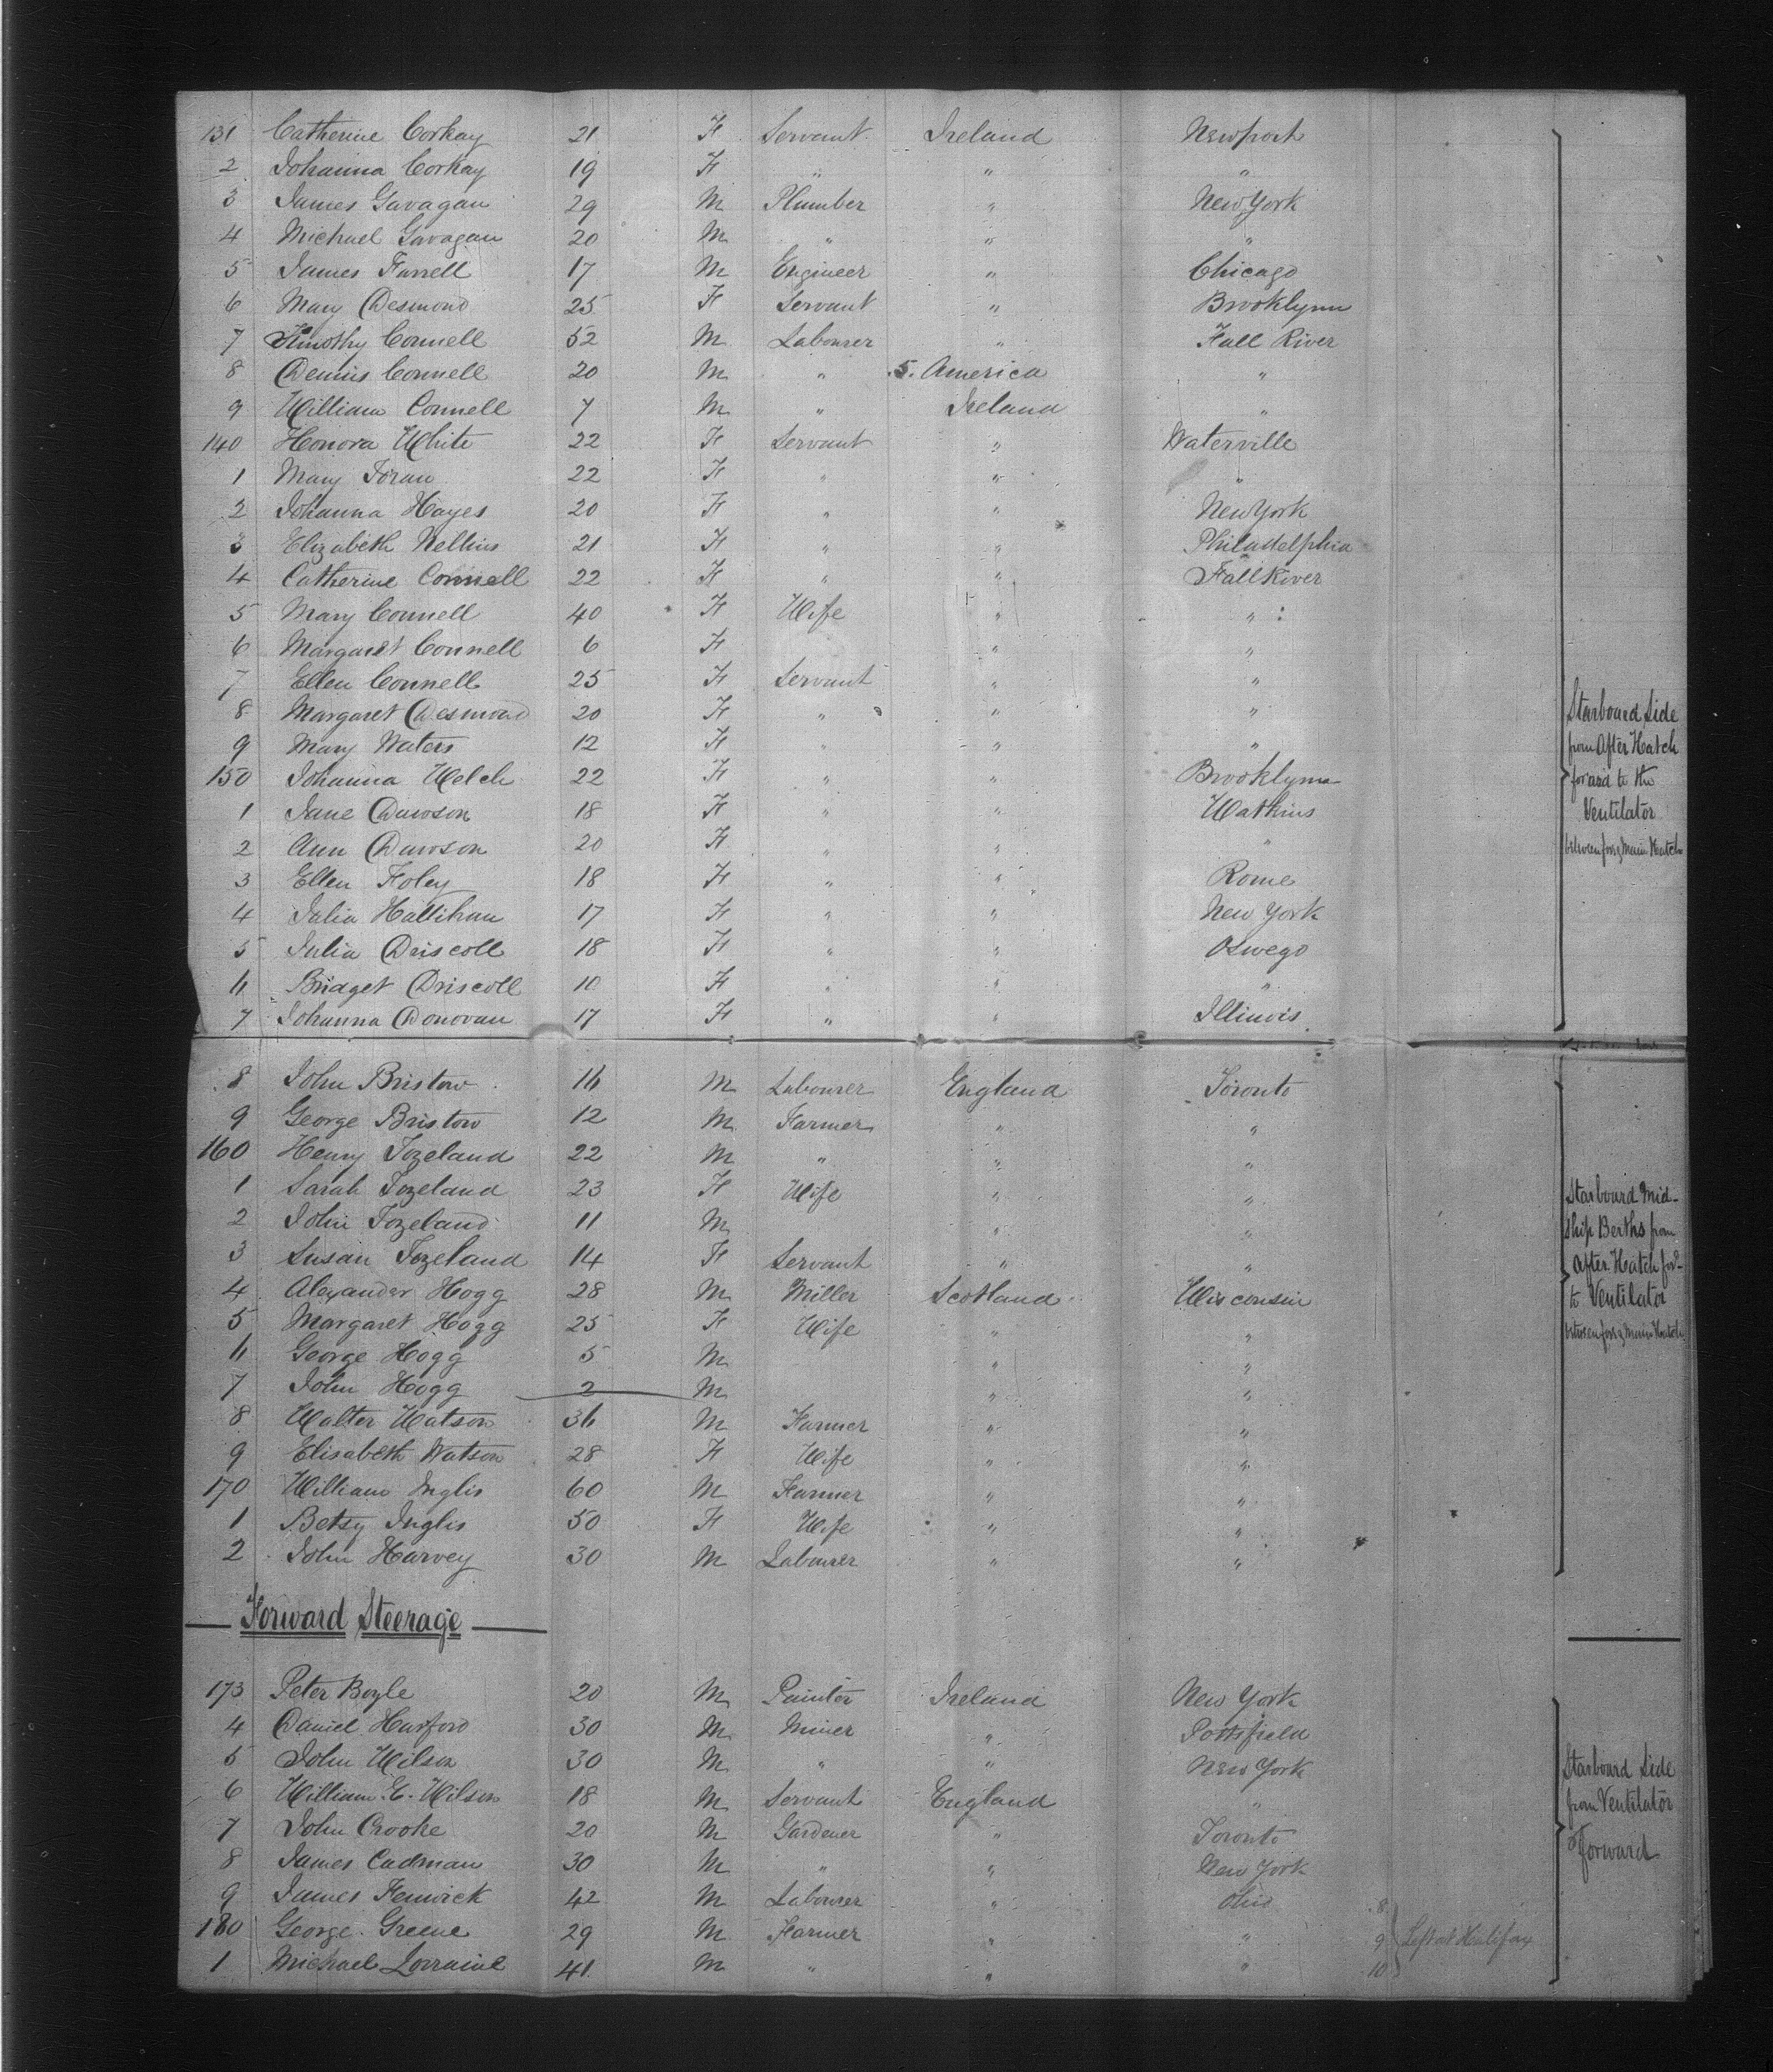 131 Catherine Corkay 21 F Servant Ireland Newport
2 Johanna Corkay 19 F " " "
3 James Gavagan 29 M Plumber " New York
4 Michael Gavagan 20 M " " "
5 James Farrell 17 M Engineer " Chicago
6 Mary Desmond 25 F Servant " Brooklynn
7 Timothy Connell 52 M Labourer " Fall River
8 Dennis Connell 20 M " S. America "
9 William Connell 7 M " Ireland "
140 Honora White 22 F Servant " Waterville
1 Mary Foran 22 F " " "
2 Johanna Hayes 20 F " " New York
3 Elizabeth Nellins 21 F " " Philadelphia
4 Catherine Connell 22 F " " Fall River
5 Mary Connell 40 F Wife " "
6 Margaret Connell 6 F " "
7 Ellen Connell 25 F Servant " "
8 Margaret Desmond 20 F " " "
9 Mary Waters 12 F " " "
150 Johanna Welch 22 F " " Brooklynn
1 Jane Dawson 18 F " " Watkins
2 Ann Dawson 20 F " " "
3 Ellen Foley 18 F " " Rome
4 Julia Hallihan 17 F " " New York
5 Julia Driscoll 18 F " " Oswego
6 Bridget Driscoll 10 F " " "
7 Johanna Donovan 17 F " " Illinois
Starboard Side
from After Hatch
forard to the
Ventilator
between fore & Main Hatch
8 John Bristow 16 M Labourer England Toronto
9 George Bristow 12 M Farmer " "
160 Henry Tozeland 22 M " " "
1 Sarah Tozeland 23 F Wife " "
2 John Tozeland 11 M " "
3 Susan Tozeland 14 F Servant " "
4 Alexander Hogg 28 M Miller Scotland Wisconsin
5 Margaret Hogg 25 F Wife " "
6 George Hogg 5 M " "
7 John Hogg 2 M " "
8 Walter Watson 36 M Farmer " "
9 Elisabeth Watson 28 F Wife " "
170 William Inglis 60 M Farmer " "
1 Betsy Inglis 50 F Wife " "
2 John Harvey 30 M Labourer " "
Starboard Mid-
ship Berths from
After Hatch ford
to Ventilator
between fore & Main Hatch
Forward Steerage
173 Peter Boyle 20 M Painter Ireland New York
4 Daniel Harford 30 M Miner " Pottsfield
5 John Wilson 30 M " " New York
6 William E. Wilson 18 M Servant England "
7 John Crooke 20 M Gardener " Toronto
8 James Cadman 30 M " " New York
9 James Fenwick 42 M Labourer " Ohio 8
180 George Greene 29 M Farmer " " 9 Left at Halifax
1 Michael Lorraine 41 M " " " 10
Starboard Side
from Ventilator
Forward